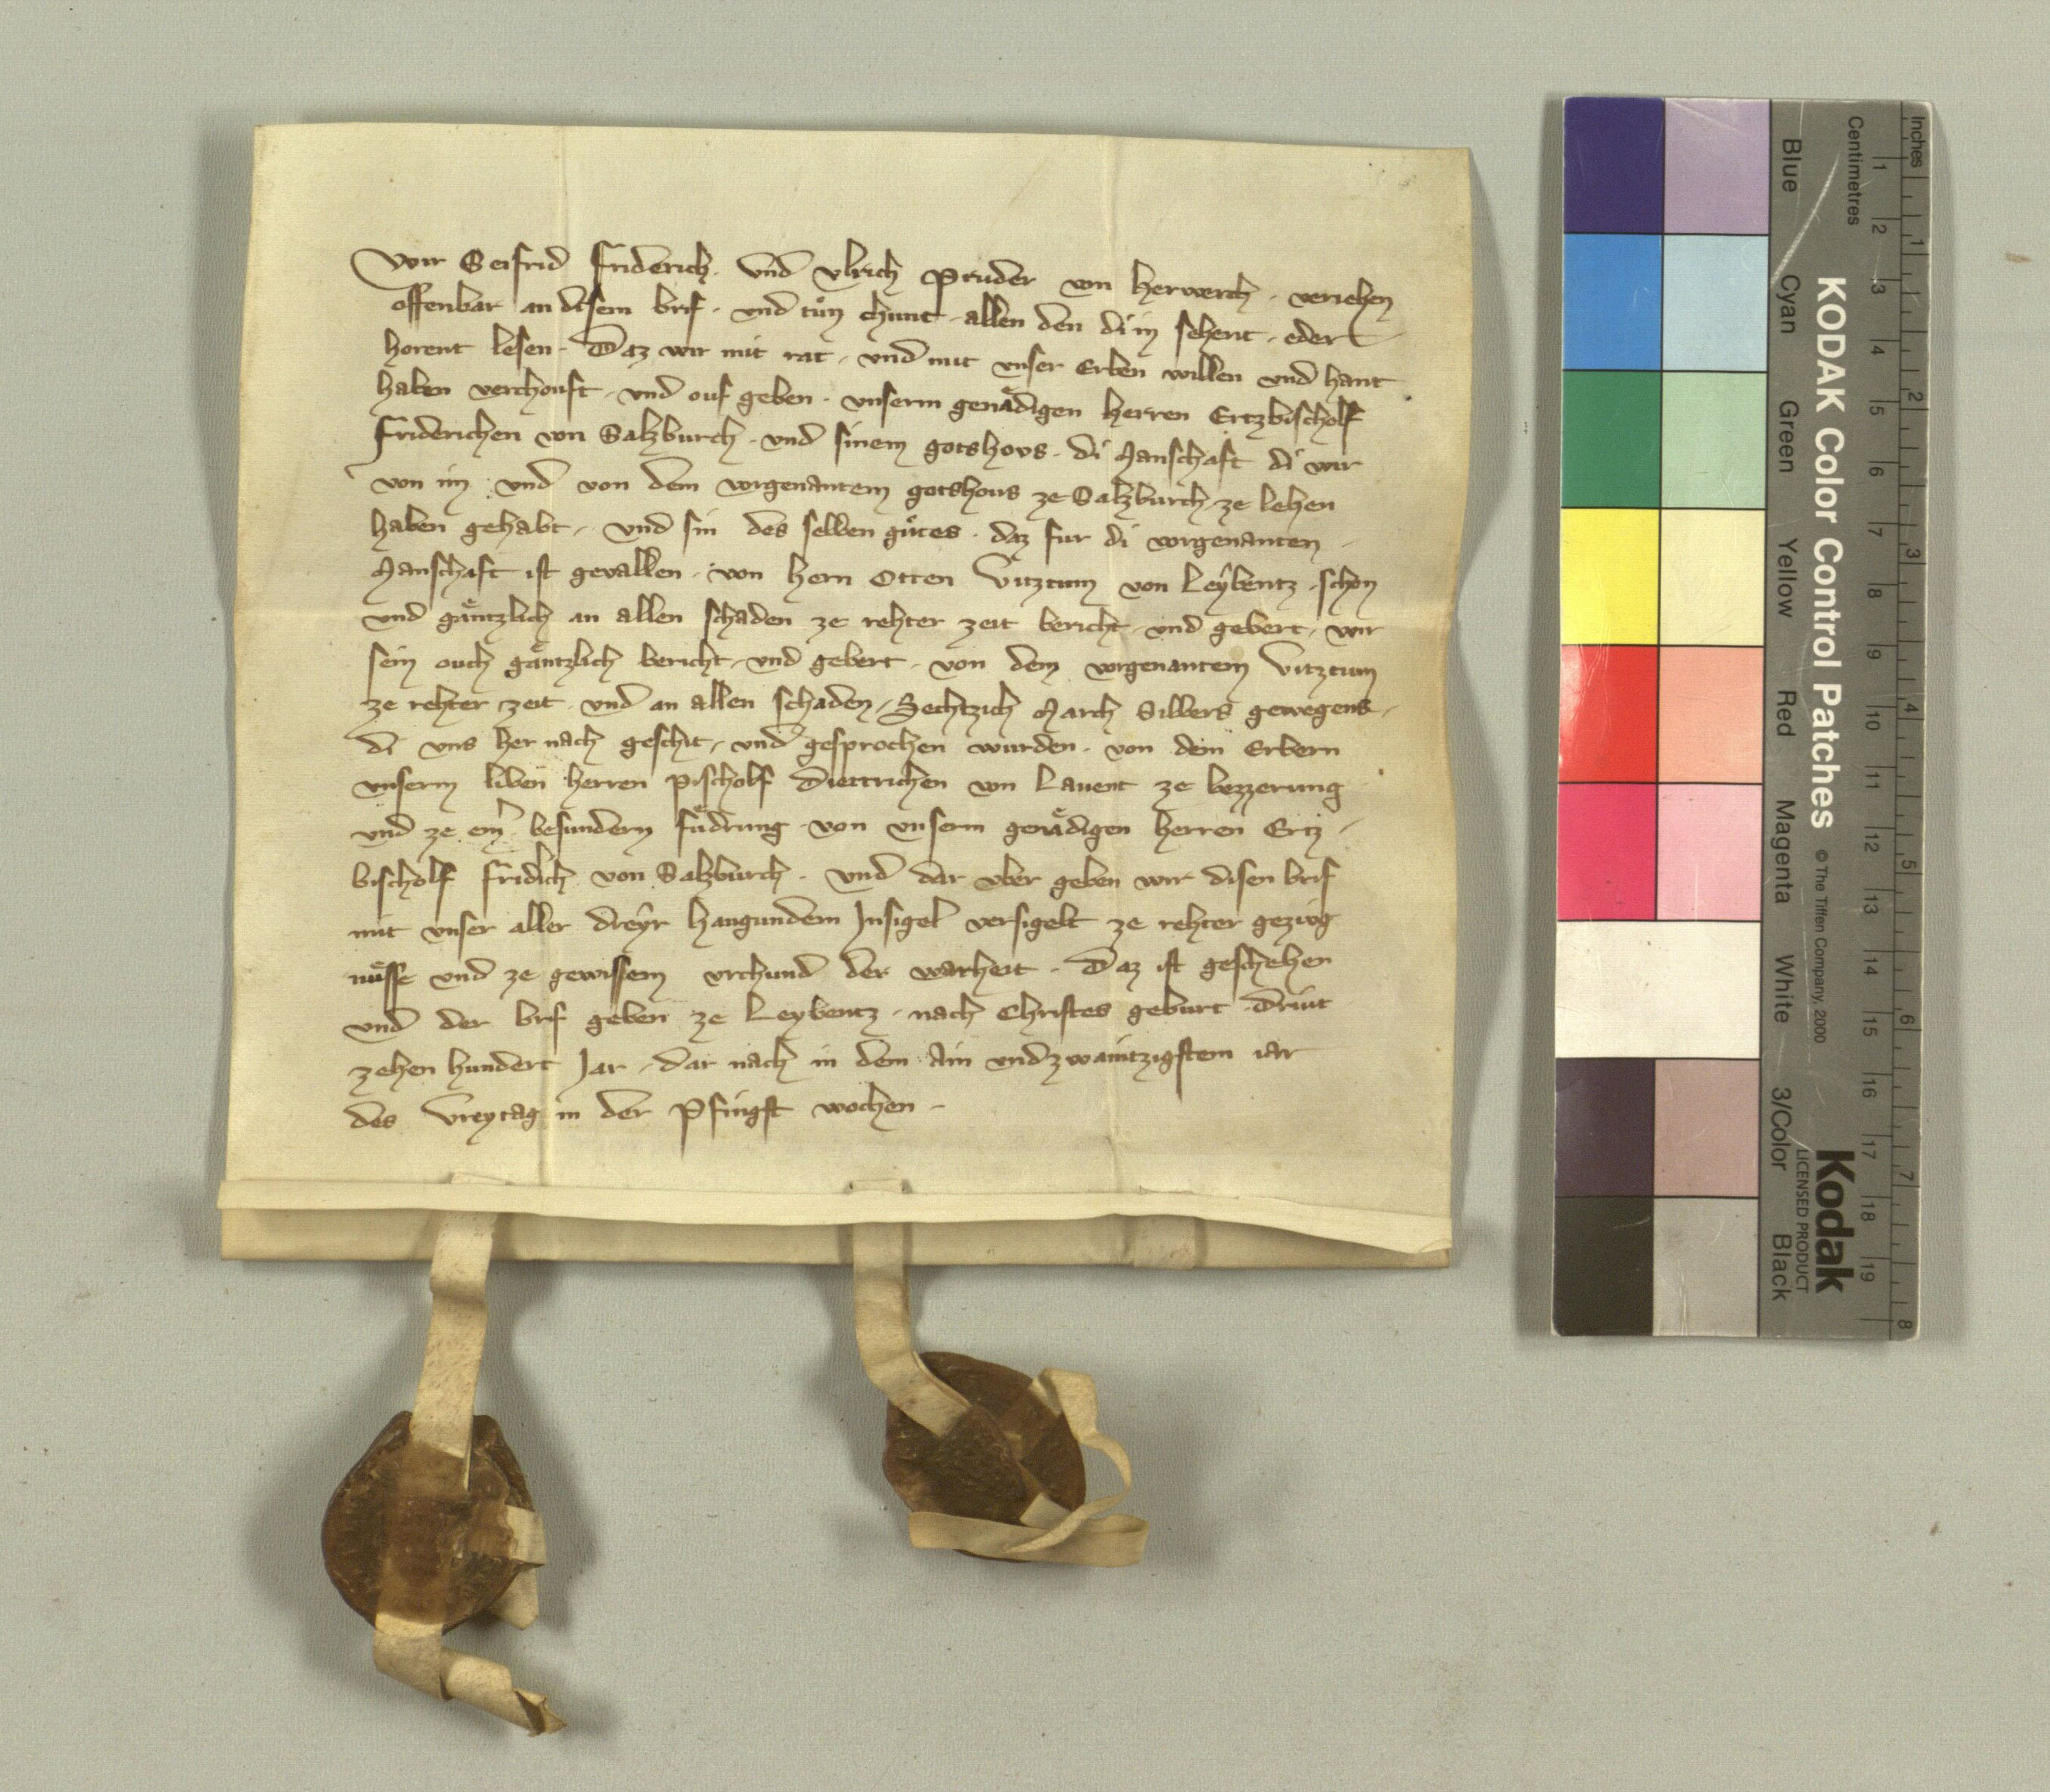 Wir Seifrid Friderich. vnd Vlrich Pruder von Herwerch. veriehen
offenbar an disem brif. vnd tuͦn chunt. allen den di in sehent. oder
horent lesen. Daz wir mit rat. vnd mit vnser Erben willen vnd hant
haben verchouft. vnd ouf geben. vnserm genaͤdigen herren Ertzbischolf
Friderichen von Salzburch. vnd sinem gotshovs. di Manschaft di wir
von im. vnd von dem vorgenantem gotshous ze Salzburch ze lehen
haben gehabt. vnd sin des selben guͤtes. daz fur di vorgenanten
Manschaft ist gevallen. von hern Otten Vitztum von Leybentz. schon
vnd gaͤntzlich an allen schaden ze rehter zeit bericht. vnd gewert. wir
sein ouch gaͤntzlich bericht. vnd gewert. von dem vorgenantem Vitztum
ze rehter zeit. vnd an allen schaden. Sechtzich March Silbers gewegens.
di vns her nach geschit. vnd gesprochen wurden. von dem Erbern
vnserm liben herren Pischolf Diettrichen von Lauent ze bezzerung
vnd ze einer besundern fuͤdrung. von vnserm genaͤdigen herren Ertz
bischolf Fridrich von Salzburch. vnd dar vber geben wir disen brif
mit vnser aller dreyr hangundem Insigel versigelt ze rehter geziug
nuͤsse vnd ze gewissem vrchund der warheit. Daz ist geschehen
vnd der brif geben ze Leybentz. nach Christes geburt. Driut
zehen hundert Jar. dar nach in dem Ain vnd zwaintzigstem iar
des Vreytag in der Pfingst wochen.
Inches
Centimetres
KODAK Color Control Patches
© The Tiffen Company, 2000
Kodak
LICENSED PRODUCT
Blue Cyan Green Yellow Red Magenta White 3/Color Black
1 2 3 4 5 6 7 8
1 2 3 4 5 6 7 8 9 10 11 12 13 14 15 16 17 18 19